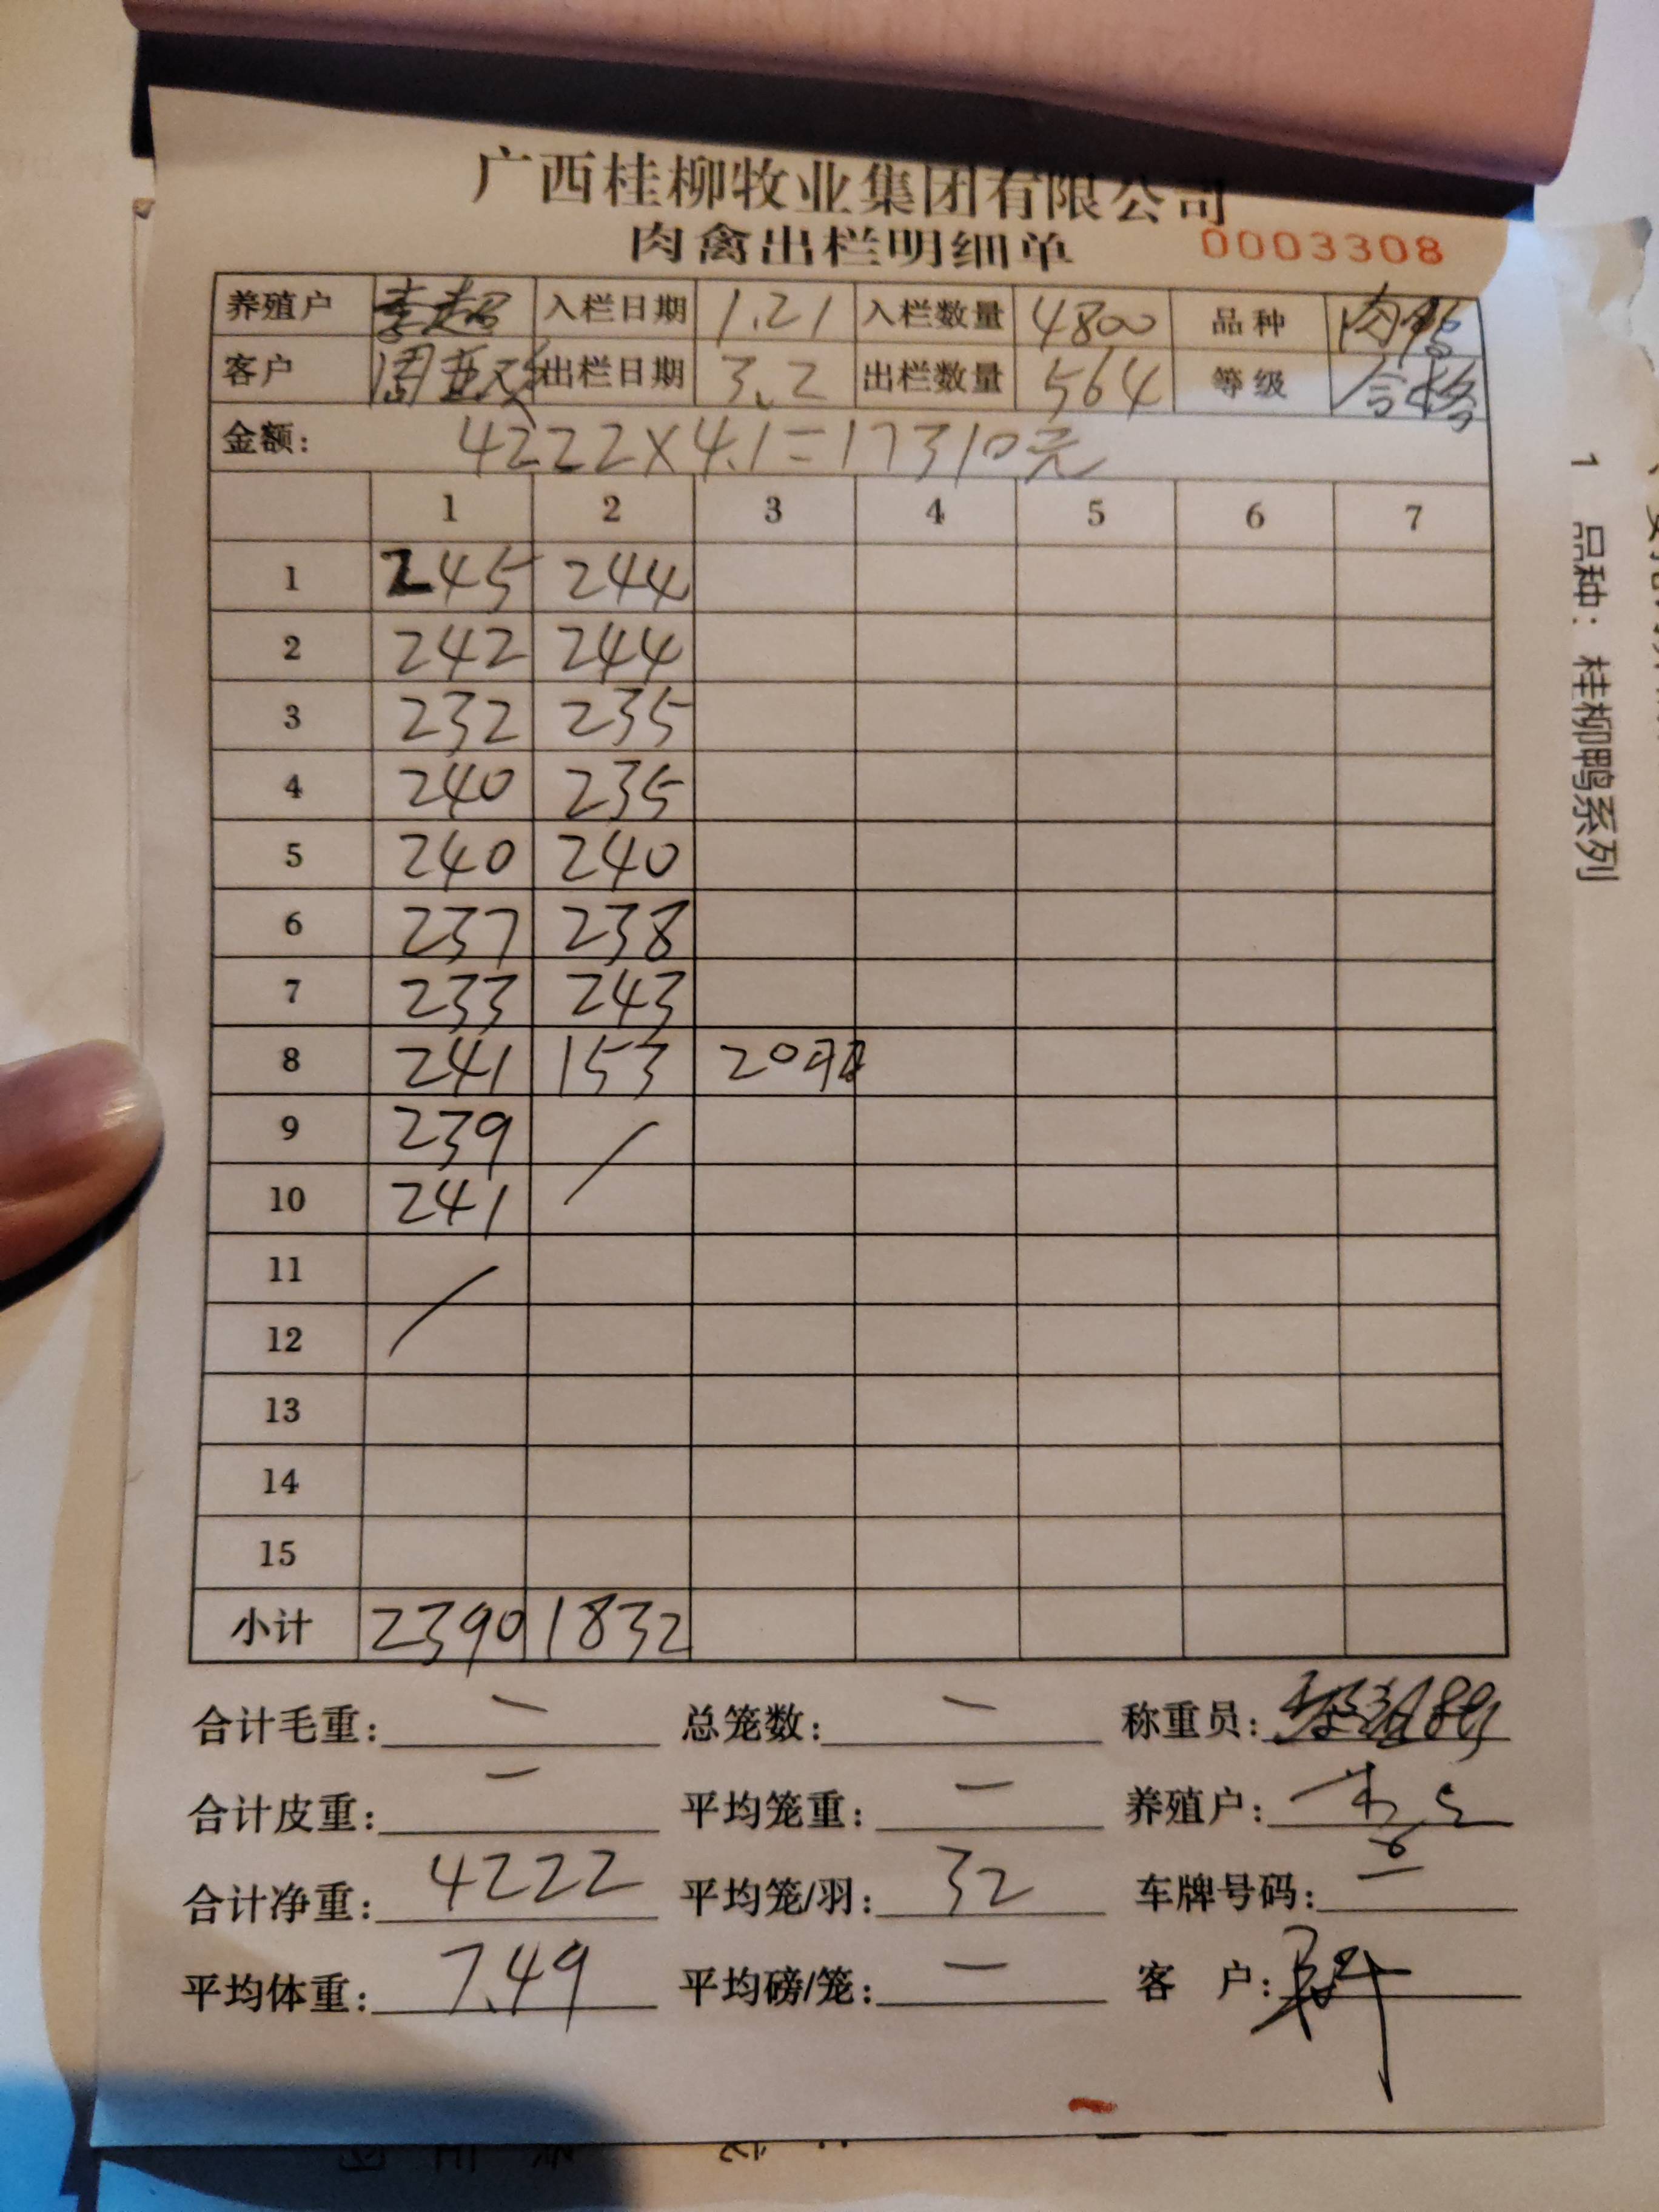 广西桂柳牧业集团有限公司
肉禽出栏明细单 0003308
养殖户 李超 入栏日期 1.21 入栏数量 4800 品种 肉鸭
客户 周亚 出栏日期 3.2 出栏数量 564 等级 合格
金额: 4222×4.1=17310元
1 2 3 4 5 6 7
1 245 244
2 242 244
3 232 235
4 240 235
5 240 240
6 237 238
7 233 243
8 241 153 20
9 239 /
10 241
11 /
12
13
14
15
小计 2390 1832
合计毛重: — 总笼数: — 称重员:
合计皮重: — 平均笼重: — 养殖户:
合计净重: 4222 平均笼/羽: 32 车牌号码: —
平均体重: 7.49 平均磅/笼: — 客 户:
1 品种: 桂柳鸭系列